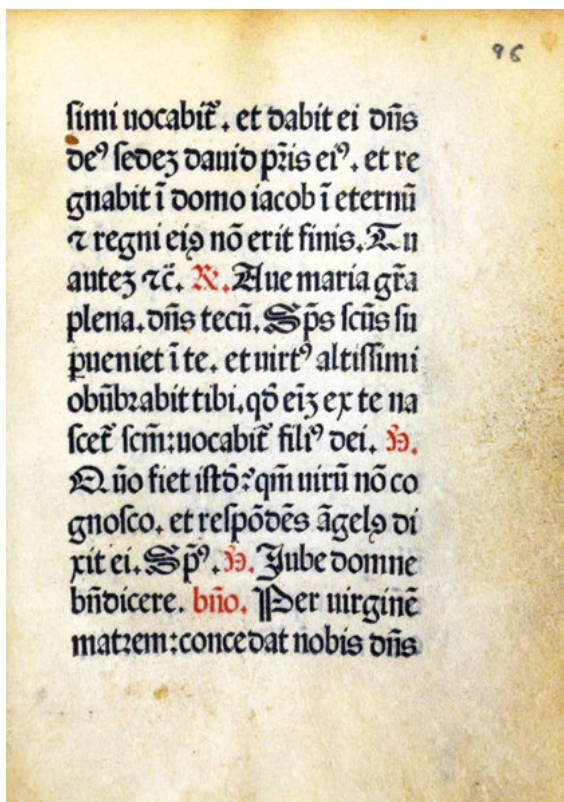 96
simi uocabit᷑. et dabit ei dn̄s
de⁹ sedeꝫ dauid pr̄is ei⁹. et re
gnabit ī domo iacob ī eternū
⁊ regni eiꝰ nō erit finis. Tu
auteꝫ ⁊c̄. ℟. Aue maria gr̄a
plena. dn̄s tecū. Sp̄s scūs su
ꝑueniet ī te. et uirt⁹ altissimi
obūbrabit tibi. qđ eiꝫ ex te na
scet᷑ scm̄: uocabit᷑ fili⁹ dei. ℣.
Quō fiet istđ? qm̄ uirū nō co
gnosco. et respōdēs āgelꝰ di
xit ei. Sp̄⁹. ℣. Jube domne
bn̄dicere. bn̄o. Per uirginē
matrem: concedat nobis dn̄s